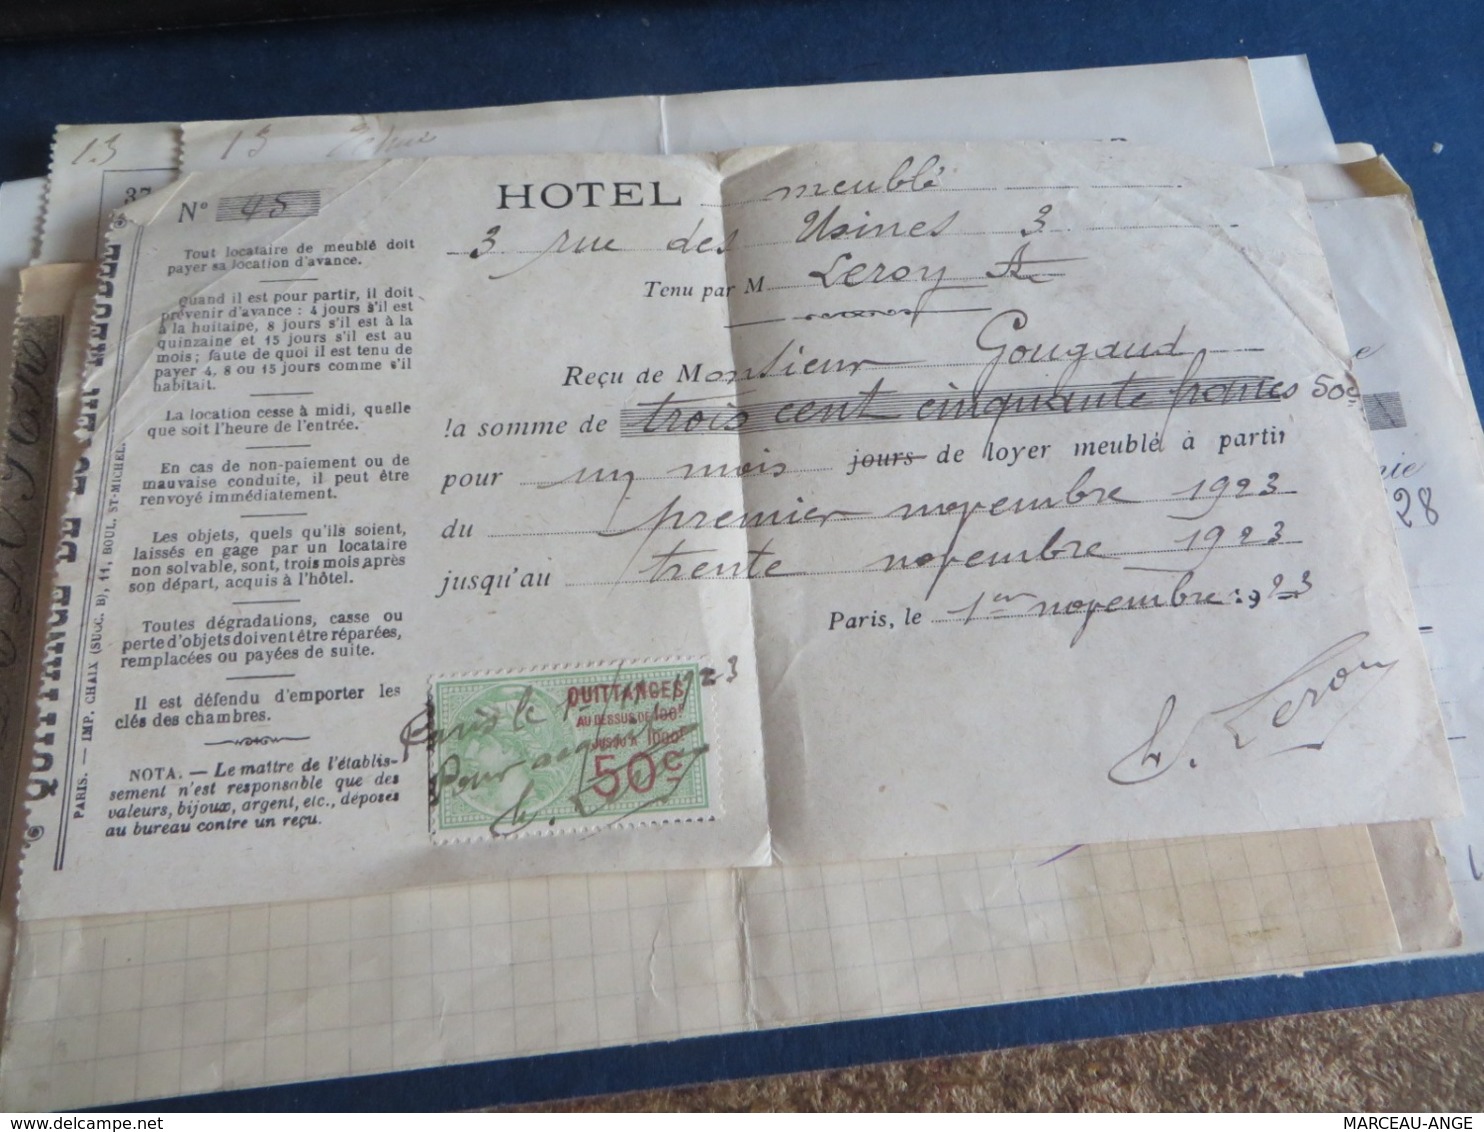 13
13
37
Nº 45
Tout locataire de meublé doit
payer sa location d'avance.
Quand il est pour partir, il doit
prévenir d'avance : 4 jours s'il est
à la huitaine, 8 jours s'il est à la
quinzaine et 15 jours s'il est au
mois; faute de quoi il est tenu de
payer 4, 8 ou 15 jours comme s'il
habitait.
La location cesse à midi, quelle
que soit l'heure de l'entrée.
En cas de non-paiement ou de
mauvaise conduite, il peut être
renvoyé immédiatement.
Les objets, quels qu'ils soient,
laissés en gage par un locataire
non solvable, sont, trois mois après
son départ, acquis à l'hôtel.
Toutes dégradations, casse ou
perte d'objets doivent être réparées,
remplacées ou payées de suite.
Il est défendu d'emporter les
clés des chambres.
NOTA. — Le maître de l'établis-
sement n'est responsable que des
valeurs, bijoux, argent, etc., déposés
au bureau contre un reçu.
PARIS. — IMP. CHAIX (SUCC. B), 11, BOUL. ST-MICHEL.
HOTEL meublé
3 rue des Usines 3
Tenu par M Leroy A
Reçu de Monsieur Gougaud
la somme de trois cent cinquante francs 50c
pour un mois jours de loyer meublé à partir
du premier novembre 1923
jusqu'au trente novembre 1923
Paris, le 1er novembre 1923
Leroy
QUITTANCES
AU DESSUS DE 100F
JUSQU'A 1000F
50c
Paris le 1-11-1923
Pour acquit
28
MARCEAU-ANGE